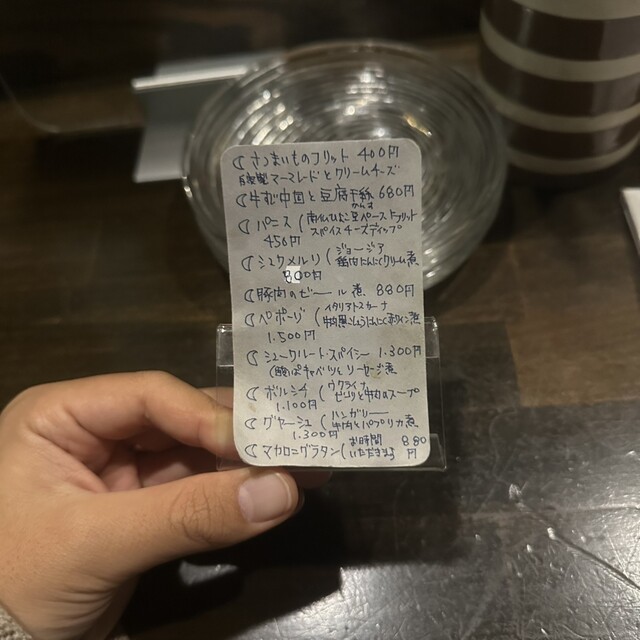 さつまいものフリット 400円
自家製マーマレードとクリームチーズ
豆腐干絲 680円
パニス(ひよこ豆ペーストフリット
スパイスチーズディップ
450円
シュクメルリ(ジョージア
鶏肉にんにくクリーム煮
800円
豚肉のビール煮 880円
ペポーゾ(イタリアトスカーナ
牛肉黒こしょうにんにく赤ワイン煮
1.500円
シュークルート・スパイシー 1.300円
(酸っぱキャベツとソーセージ煮
ボルシチ(ウクライナ
ビーツと牛肉のスープ
1.100円
グヤーシュ(ハンガリー
牛肉とパプリカ煮
1.300円
マカロニグラタン(お時間
いただきます
880
円